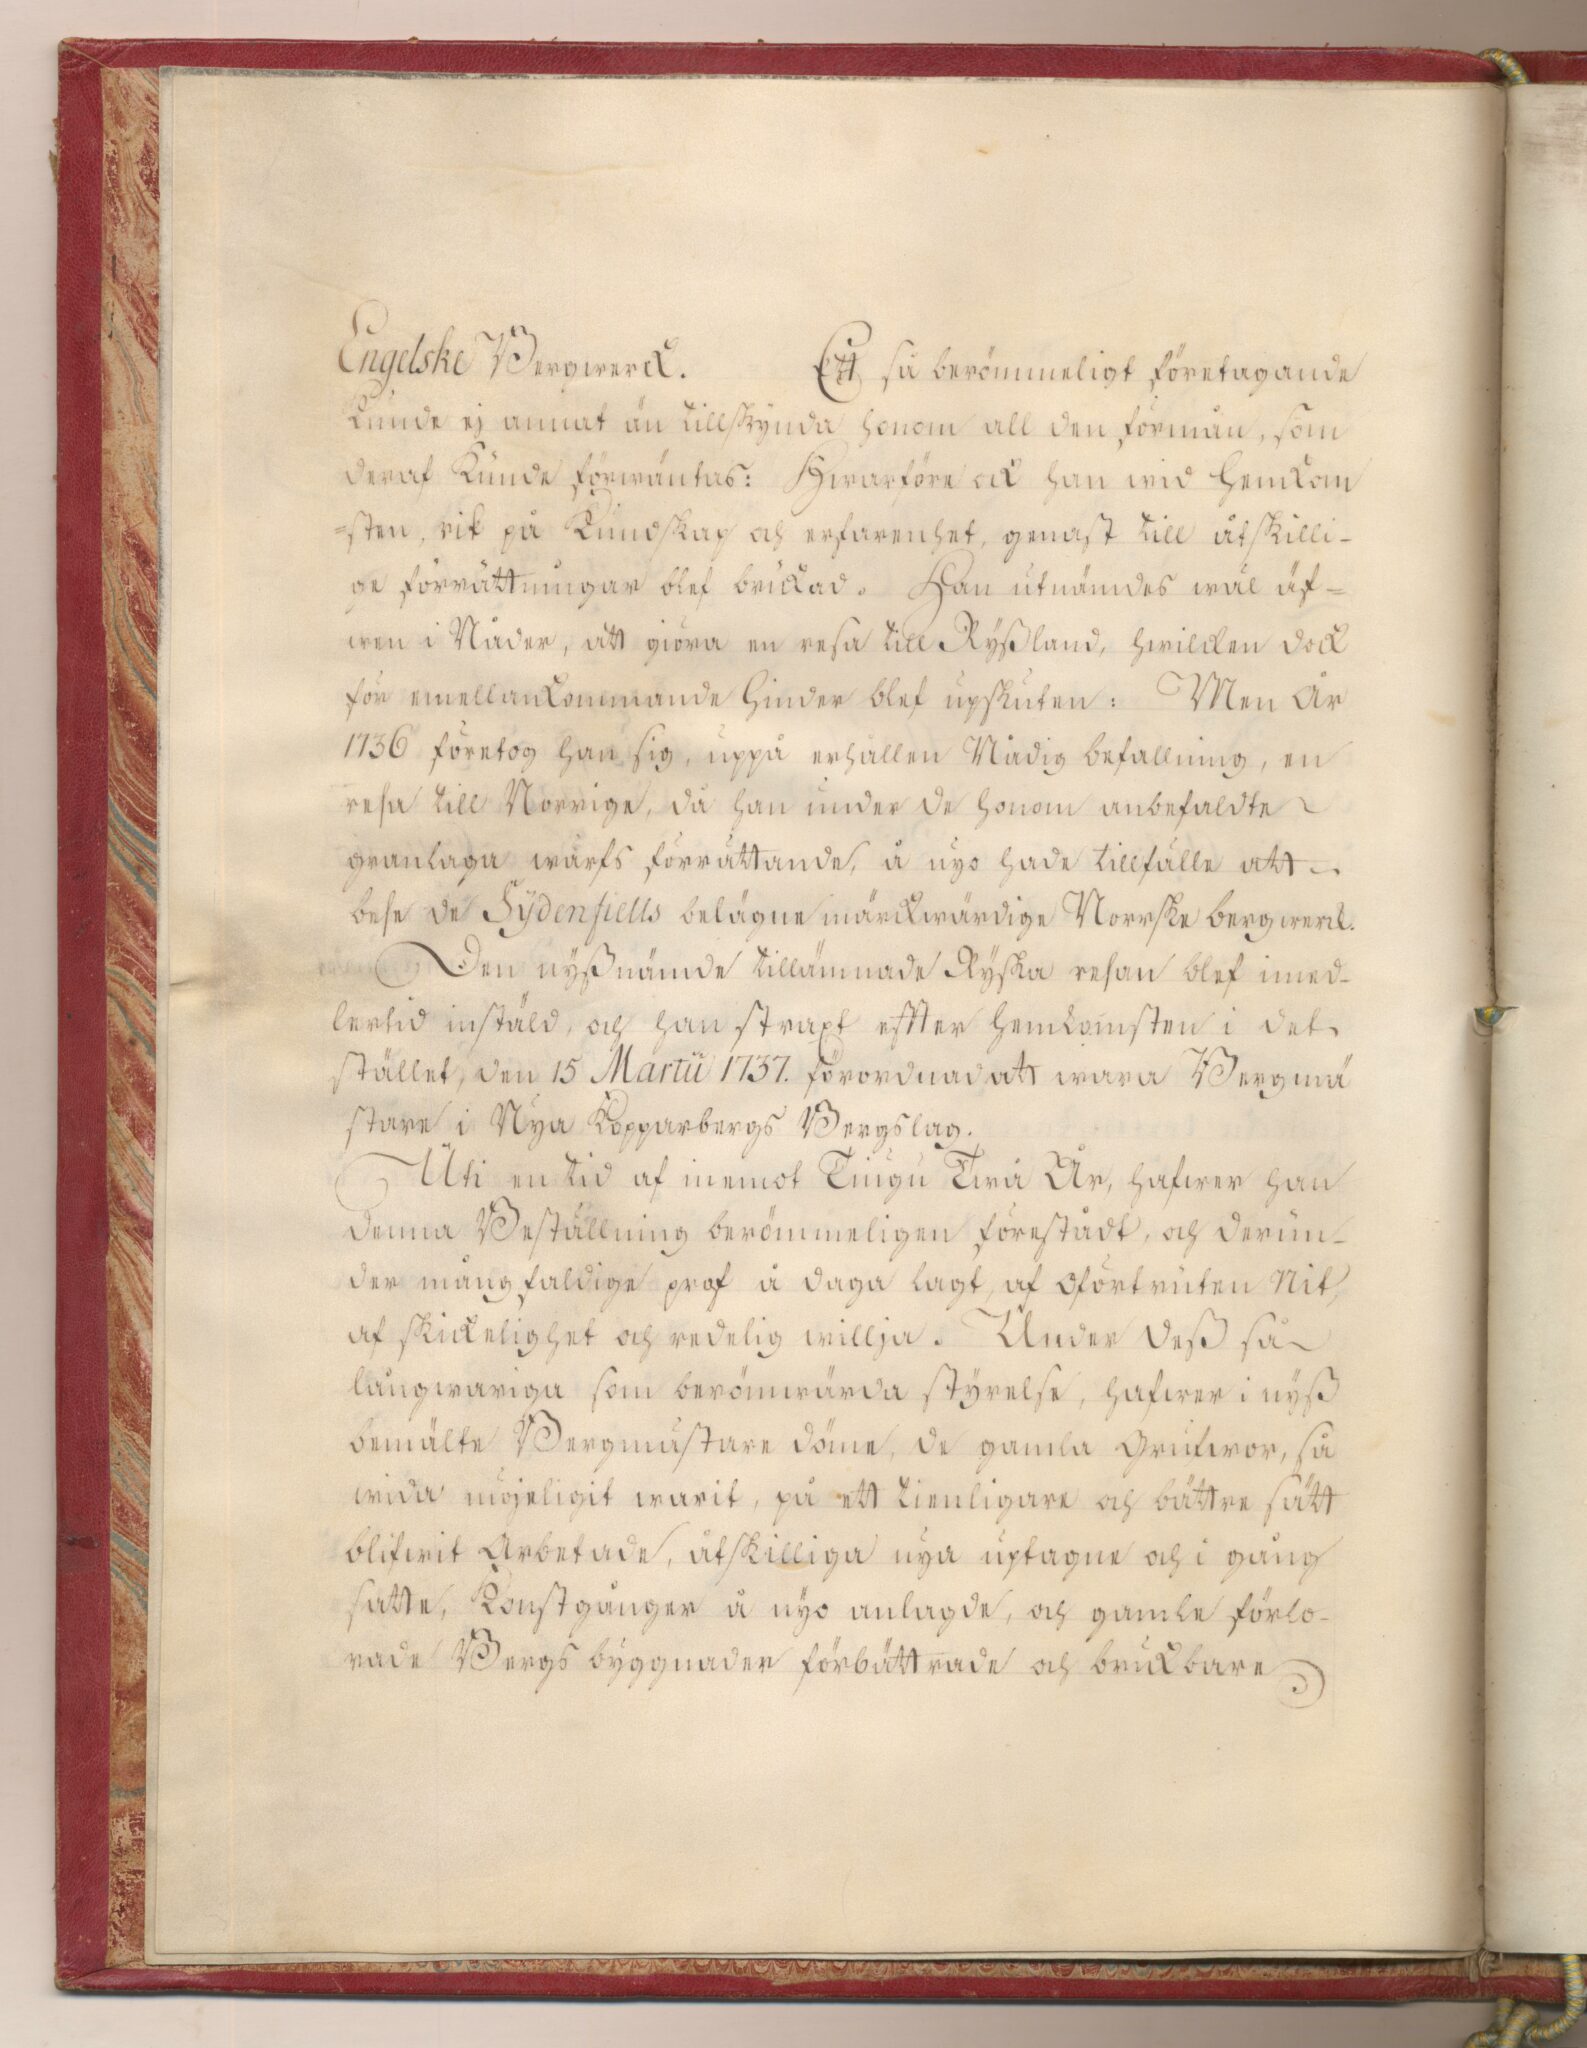 Engelske Bergwerck. Ett så berömmeligt företagande
kunde ej annat än tillskynda honom all den förmån, som
deraf kunde förwäntas: Hwarföre ock han wid hemkom
=sten, rik på kundskap och erfarenhet, genast till åtskilli-
ge förrättningar blef bruckad. Han utnämdes wäl äf=
wen i Nåder, att giöra en resa till Ryßland, hwilcken dock
för emellankommande hinder blef upskuten: Men År
1736 företog han sig, uppå erhållen Nådig befallning, en
resa till Norrige, då han under de honom anbefaldte
granlaga wärfs förrättande, å nyo hade tillfälle att
bese de Sydenfiells belägne märckwärdige Norrske bergwerck.
Den nyßnämde tillämnade Ryska resan blef imed-
lertid instäld, och han straxt effter hemkomsten i det
stället, den 15 Martii 1737. förordnad att wara Bergmä
stare i Nya Kopparbergs Bergslag.
Uti en tid af inemot Tiugu Twå År, hafwer han
denna Beställning berömmeligen förestådt, och derun-
der mångfaldige prof å daga lagt, af oförtruten Nit,
af skickelighet och redelig willja. Under deß så
långwariga som berömwärda styrelse, hafwer i nyß
bemälte Bergmästare döme, de gamla Grufwor, så
wida möjeligit warit, på ett tienligare och bättre sätt
blifwit Arbetade, åtskilliga nya uptagne och i gång
satte, Konstgånger å nyo anlagde, och gamle förlo-
rade Bergs byggnader förbättrade och bruckbare